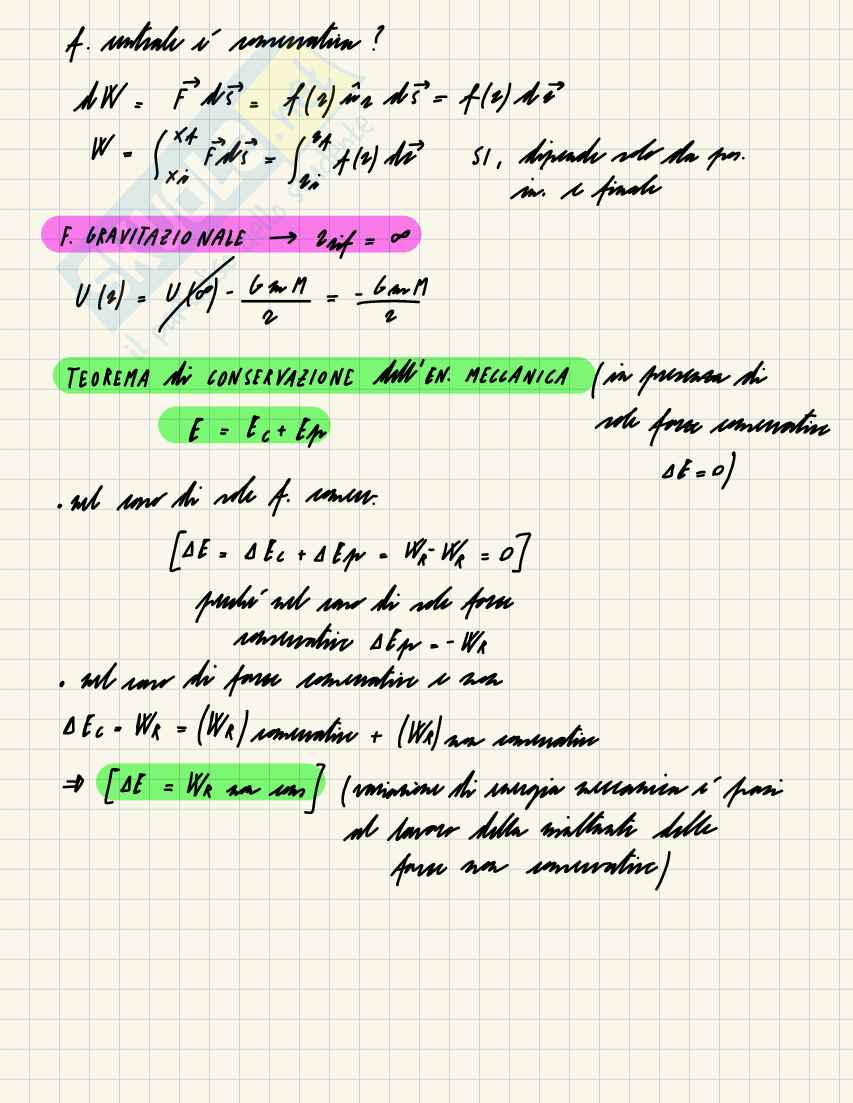 f. centrale è conservativa?
dW = F⃗ ds⃗ = f(r) û_r ds⃗ = f(r) dr⃗
W = ∫_{xi}^{xf} F⃗ds⃗ = ∫_{ri}^{rf} f(r) dr⃗ SI, dipende solo da pos.
in. e finale
F. GRAVITAZIONALE → r_rif = ∞
U(r) = U(∞) - GmM/r = -GmM/r
TEOREMA di CONSERVAZIONE dell'EN. MECCANICA (in presenza di
sole forze conservative
ΔE = 0)
E = Ec + Ep
• nel caso di sole f. conser.
[ΔE = ΔEc + ΔEp = W_R - W_R = 0]
perché nel caso di sole forze
conservative ΔEp = - W_R
• nel caso di forze conservative e non
ΔEc = W_R = (W_R) conservative + (W_R) non conservative
⇒ [ΔE = W_R non cons] (variazione di energia meccanica è pari
al lavoro della risultante delle
forze non conservative)
SKUOLA.net